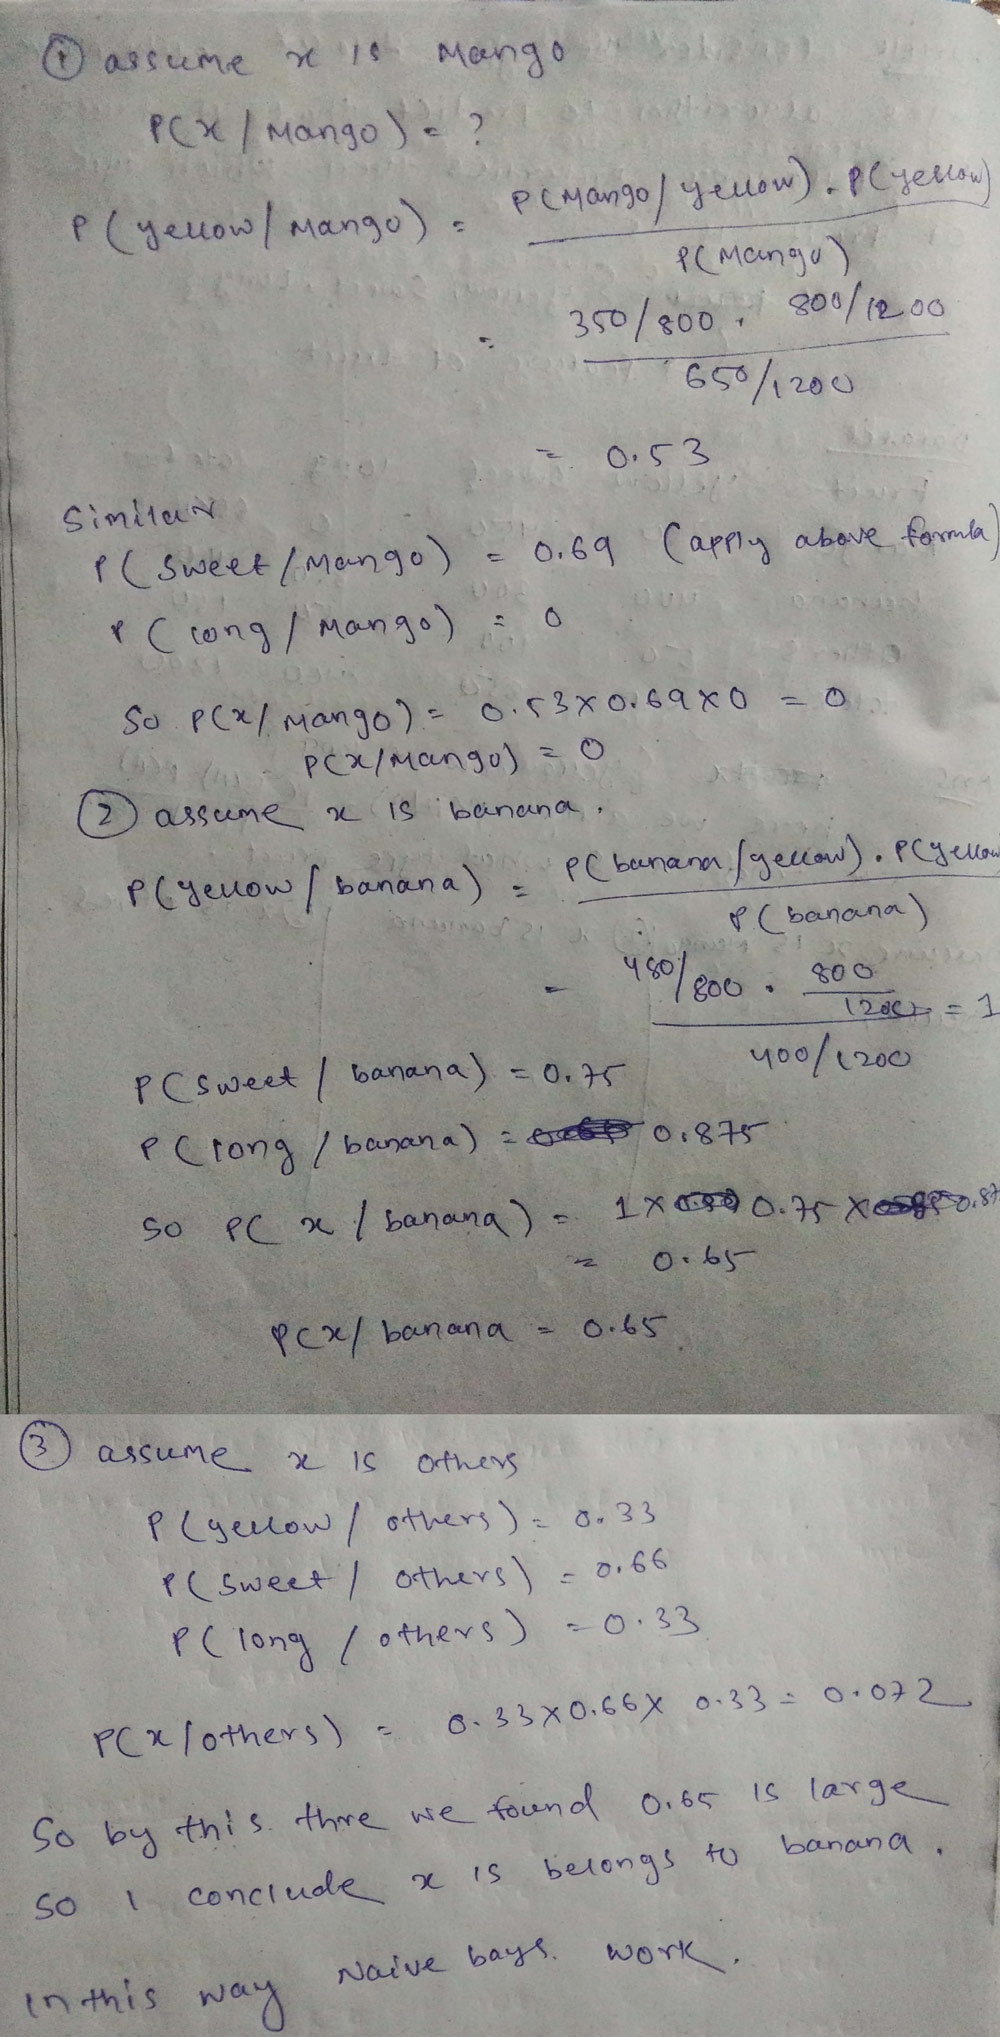 ① assume x is Mango
P(x/Mango) = ?
P(yellow/Mango) = P(Mango/yellow) . P(yellow)
P(Mango)
= 350/800 . 800/1200
650/1200
= 0.53
Similar
P(sweet/Mango) = 0.69 (apply above formula)
P(long/Mango) = 0
So P(x/Mango) = 0.53x0.69x0 = 0
P(x/Mango) = 0
② assume x is banana.
P(yellow/banana) = P(banana/yellow) . P(yellow
P(banana)
= 480/800 . 800/1200 = 1
400/1200
P(sweet/banana) = 0.75
P(long/banana) = 0.875
So P(x/banana) = 1x 0.75 x 0.87
= 0.65
P(x/banana = 0.65
③ assume x is others
P(yellow/others) = 0.33
P(sweet/others) = 0.66
P(long/others) = 0.33
P(x/others) = 0.33x0.66x 0.33 = 0.072
So by this thre we found 0.65 is large
so I conclude x is belongs to banana.
In this way Naive bays. work.